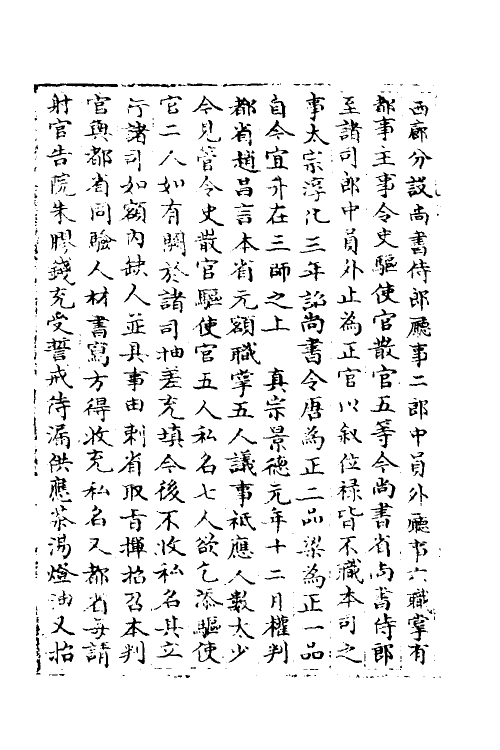 西廊分設尚書侍郎廳事二郎中員外廳事六職掌有
都事主事令史驅使官散官五等今尚書省尚書侍郎
至諸司郎中員外止為正官以敘位祿皆不職本司之
事太宗淳化三年詔尚書令唐為正二品梁為正一品
自今宜升在三師之上　真宗景德元年十二月權判
都省趙昌言本省元額職掌五人議事祗應人數太少
今見管令史散官驅使官五人私名七人欲乞添驅使
官二人如有闕於諸司抽差充填今後不收私名其立
行諸司如額內缺人並具事由剌省取旨揮招召本判
官與都省同驗人材書寫方得收充私名又都省每請
射官告院朱膠錢充受誓戒待漏供應茶湯燈油又招